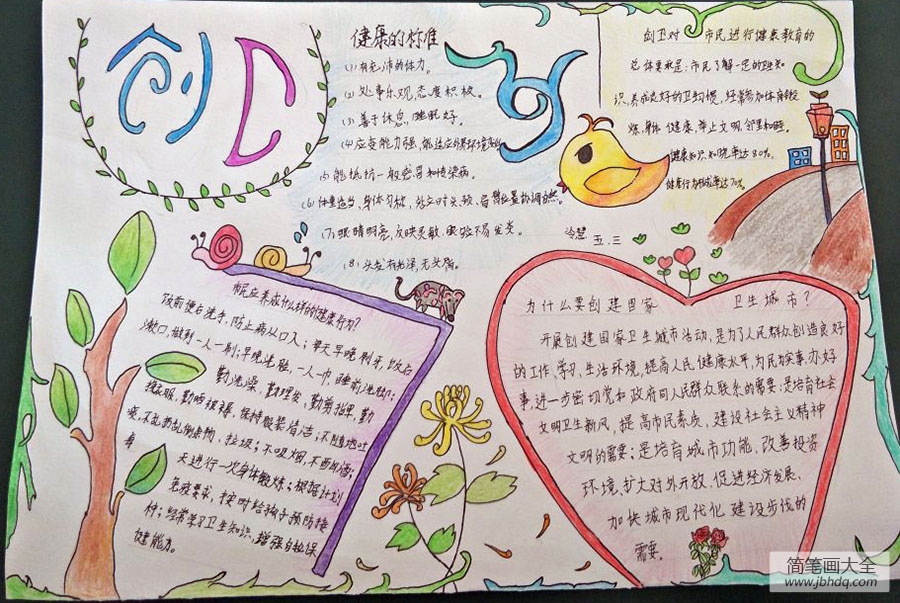 创卫
健康的标准
(1)有充沛的体力。
(2)处事乐观,态度积极。
(3)善于休息,睡眠好。
(4)应变能力强,能适应外界环境变化。
(5)能抵抗一般感冒和传染病。
(6)体重适当,身体匀称,站立时头、肩、臀位置协调
(7)眼睛明亮,反映灵敏,眼睑不易发炎。
(8)头发有光泽,无头屑。
创卫对 市民进行健康教育的
总体要求是:市民了解一定的卫生知
识,养成良好的卫生习惯,经常参加体育锻
炼,身体健康,举止文明,邻里和睦。
健康知识知晓率达80%。
健康行为形成率达70%。
五.三
市民应养成什么样的健康行为?
饭前便后洗手,防止病从口入;每天早晚刷牙,饭后
漱口,做到一人一刷;早晚洗脸,一人一巾,睡前洗脚;
勤洗澡、勤理发、勤剪指甲,勤
换衣服,勤晒被褥,保持服装清洁;不随地吐
痰,不乱扔乱倒杂物、垃圾;不吸烟,不酗酒;
每
天进行一次身体锻炼;根据计划
免疫要求,按时给孩子预防接
种;经常学习卫生知识,增强自我保
健能力。
为什么要创建国家 卫生城市?
开展创建国家卫生城市活动,是为了人民群众创造良好
的工作、学习、生活环境,提高人民健康水平,为民办实事、办好
事,进一步密切党和政府同人民群众联系的需要;是培育社会
文明卫生新风,提高市民素质,建设社会主义精神
文明的需要;是培育城市功能,改善投资
环境,扩大对外开放,促进经济发展、
加快城市现代化建设步伐的
需要。
简笔画大全
www.jbhdq.com